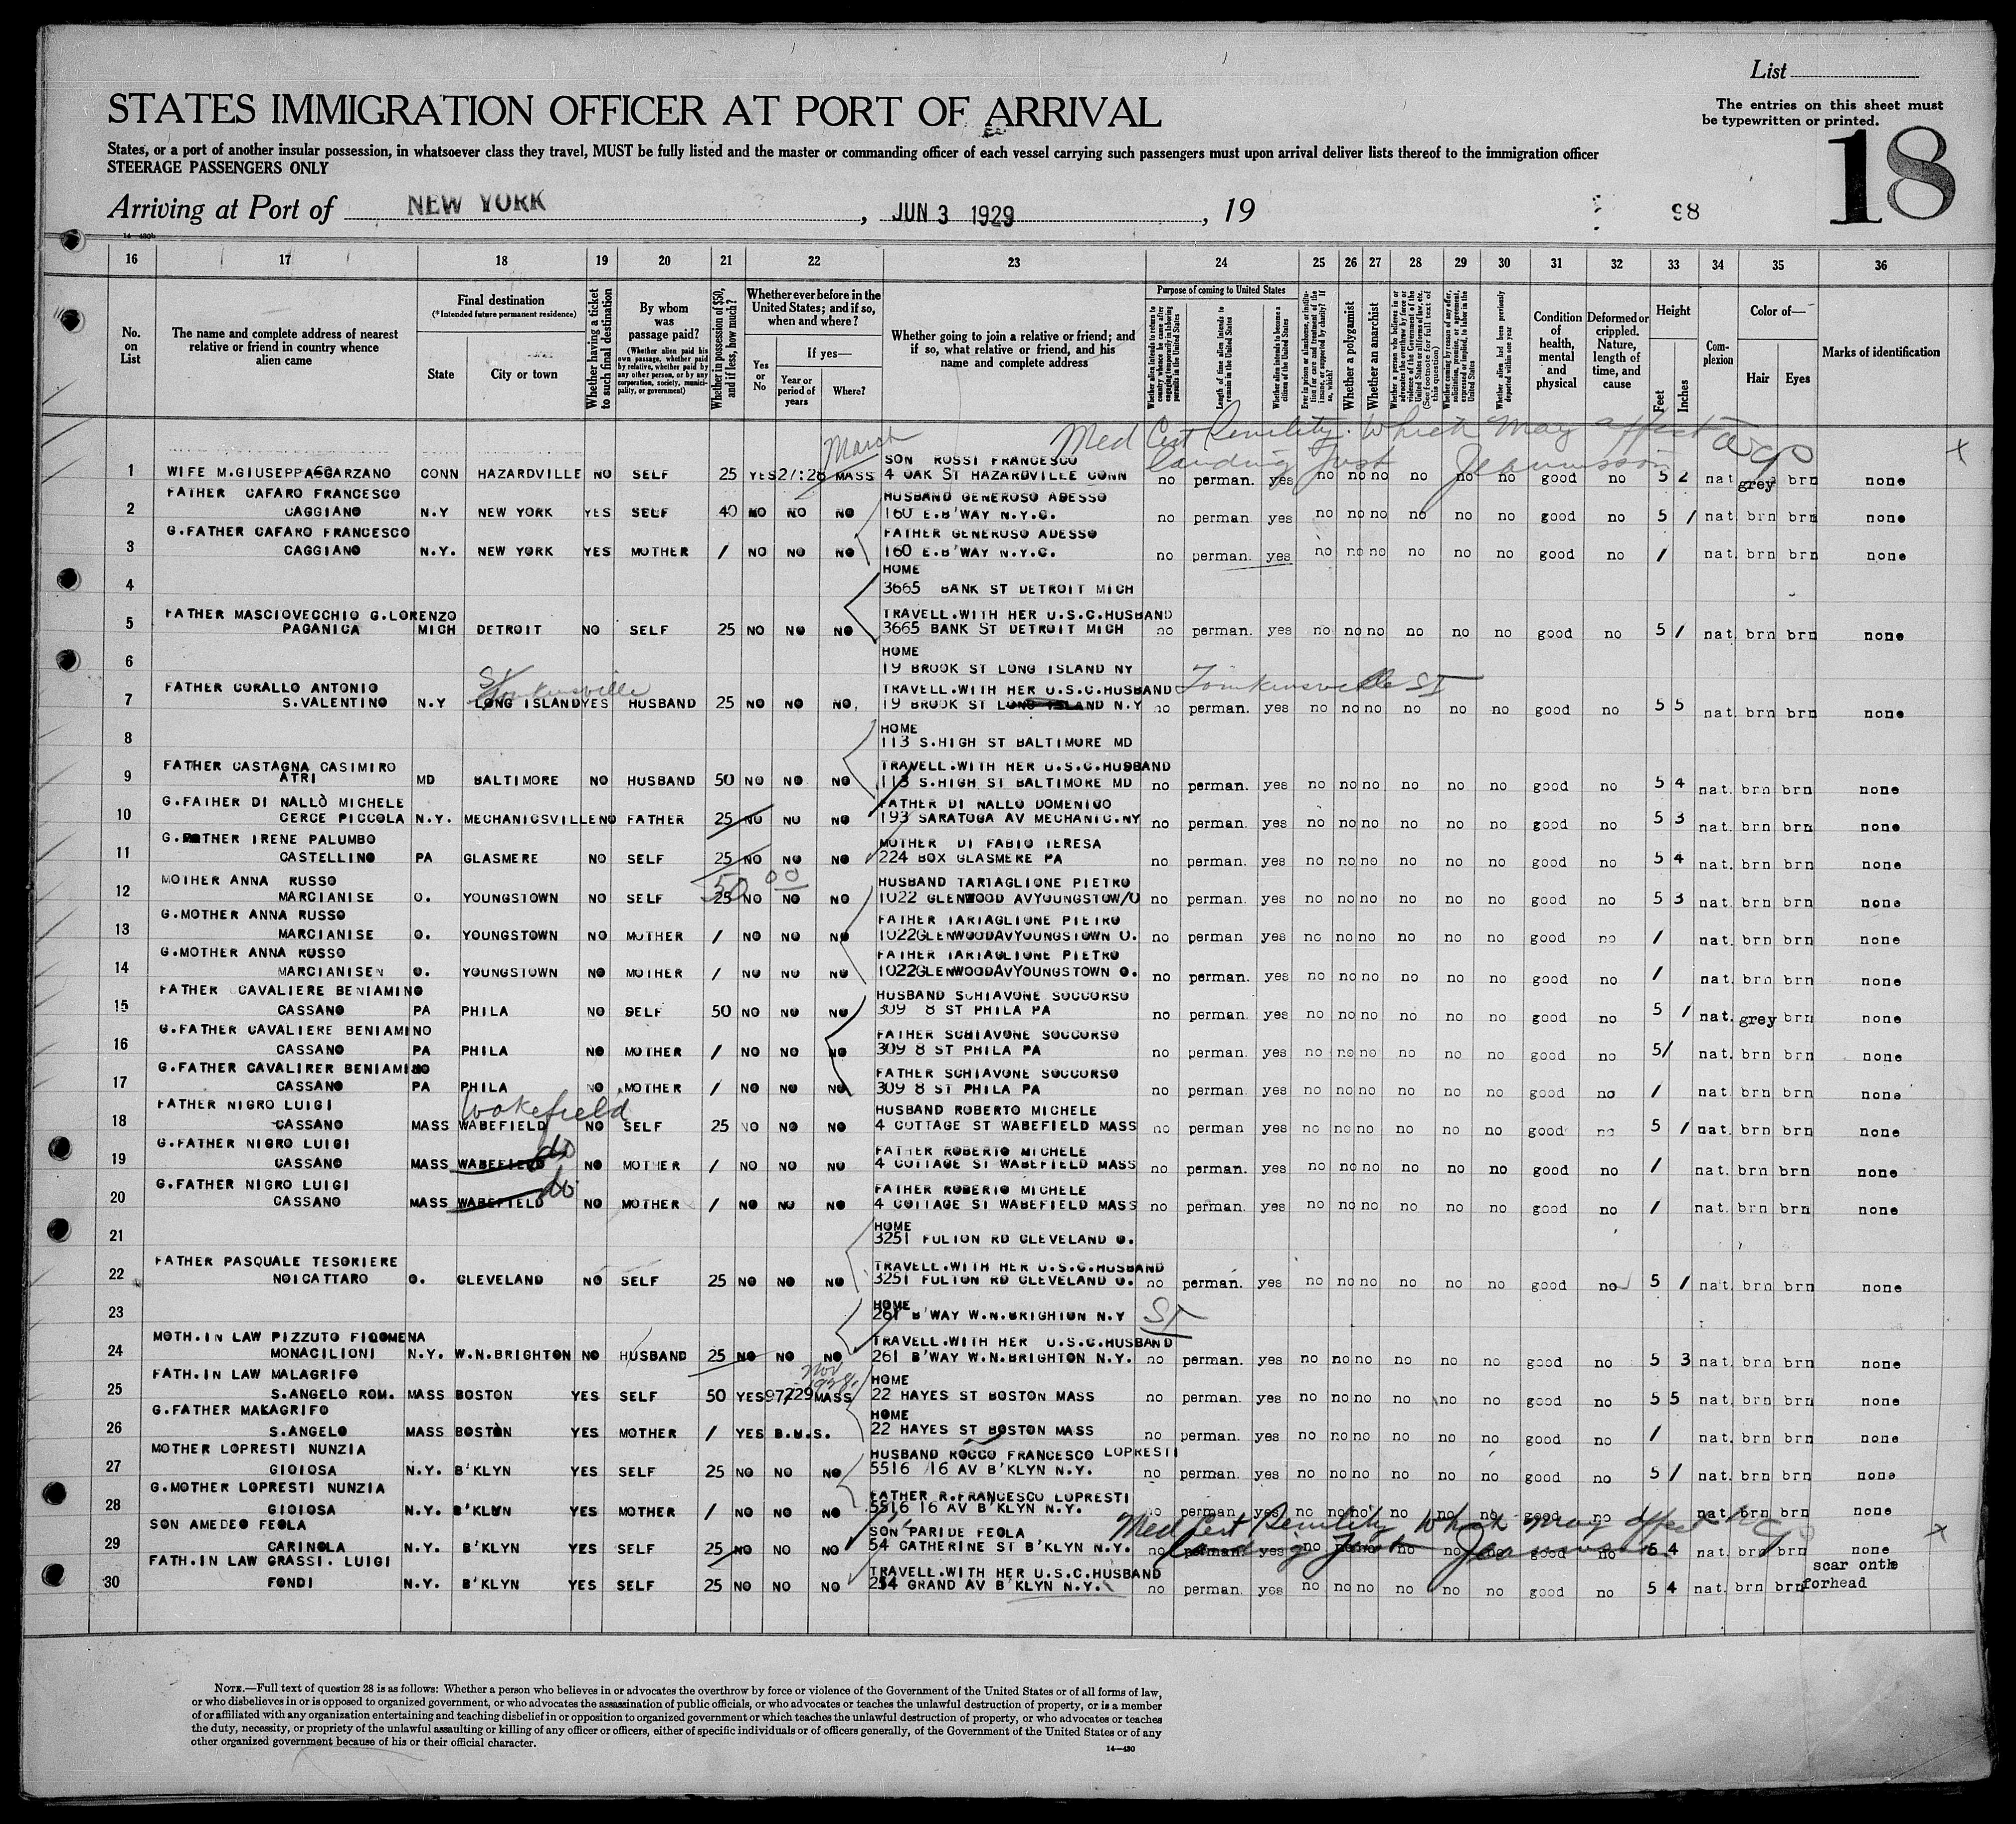 List
The entries on this sheet must
be typewritten or printed.
18
STATES IMMIGRATION OFFICER AT PORT OF ARRIVAL
States, or a port of another insular possession, in whatsoever class they travel, MUST be fully listed and the master or commanding officer of each vessel carrying such passengers must upon arrival deliver lists thereof to the immigration officer
STEERAGE PASSENGERS ONLY
Arriving at Port of NEW YORK, JUN 3 1929, 19
98
16 17 18 19 20 21 22 23 24 25 26 27 28 29 30 31 32 33 34 35 36
No. on List
The name and complete address of nearest relative or friend in country whence alien came
Final destination
(*Intended future permanent residence)
State
City or town
Whether having a ticket to such final destination
By whom was passage paid?
(Whether alien paid his own passage, whether paid by relative, whether paid by any other person, or by any corporation, society, municipality, or government)
Whether in possession of $50, and if less, how much?
Whether ever before in the United States; and if so, when and where?
Yes or No
If yes—
Year or period of years
Where?
Whether going to join a relative or friend; and if so, what relative or friend, and his name and complete address
Purpose of coming to United States
Whether alien intends to return to country whence he came after engaging temporarily in laboring pursuits in the United States
Length of time alien intends to remain in the United States
Whether alien intends to become a citizen of the United States
Whether a polygamist
Whether an anarchist
Condition of health, mental and physical
Deformed or crippled. Nature, length of time, and cause
Height
Feet
Inches
Complexion
Color of—
Hair
Eyes
Marks of identification
Med Cert Senility. Which may affect
landing Just
March
SON ROSSI FRANCESCO
1 WIFE M.GIUSEPPA SGARZANO CONN HAZARDVILLE NO SELF 25 YES 27:28 MASS 4 OAK ST HAZARDVILLE CONN no perman. yes no no no no no no good no 5 2 nat grey brn none
FATHER CAFARO FRANCESCO HUSBAND GENEROSO ADESSO
2 CAGGIANO N.Y NEW YORK YES SELF 40 NO NO NO 160 E.B'WAY N.Y.C. no perman yes no no no no no no good no 5 / nat. brn brn none
G.FATHER CAFARO FRANCESCO FATHER GENEROSO ADESSO
3 CAGGIANO N.Y. NEW YORK YES MOTHER / NO NO NO 160 E.B'WAY N.Y.C. no perman. yes no no no no no no good no / nat. brn brn none
HOME
4 3665 BANK ST DETROIT MICH
FATHER MASCIOVECCHIO G.LORENZO TRAVELL.WITH HER U.S.C.HUSBAND
5 PAGANICA MICH DETROIT NO SELF 25 NO NO NO 3665 BANK ST DETROIT MICH no perman. yes no no no no no no good no 5 / nat. brn brn none
HOME
6 19 BROOK ST LONG ISLAND NY
Tomkinsville SI
FATHER CORALLO ANTONIO TRAVELL.WITH HER U.S.C.HUSBAND Tomkinsville SI
7 S.VALENTINO N.Y LONG ISLAND YES HUSBAND 25 NO NO NO. 19 BROOK ST LONG ISLAND N.Y no perman. yes no no no no no no good no 5 5 nat. brn brn none
HOME
8 113 S.HIGH ST BALTIMORE MD
FATHER CASTAGNA CASIMIRO TRAVELL.WITH HER U.S.C.HUSBAND
9 ATRI MD BALTIMORE NO HUSBAND 50 NO NO. NO 113 S.HIGH ST BALTIMORE MD no perman. yes no no no no no no good no 5 4 nat. brn brn none
G.FATHER DI NALLO MICHELE FATHER DI NALLO DOMENICO
10 CERCE PICCOLA N.Y. MECHANICSVILLE NO FATHER 25 NO NO NO 193 SARATOGA AV MECHANIC.NY no perman. yes no no no no no no good no 5 3 nat. brn brn none
G.MOTHER IRENE PALUMBO MOTHER DI FABIO TERESA
11 CASTELLINO PA GLASMERE NO SELF 25 NO NO NO 224 BOX GLASMERE PA no perman. yes no no no no no no good no 5 4 nat. brn brn none
50 00
MOTHER ANNA RUSSO HUSBAND TARTAGLIONE PIETRO
12 MARCIANISE O. YOUNGSTOWN NO SELF 25 NO NO NO 1022 GLENWOOD AVYOUNGSTOW/O no perman. yes no no no no no no good no 5 3 nat. brn brn none
G.MOTHER ANNA RUSSO FATHER TARTAGLIONE PIETRO
13 MARCIANISE O. YOUNGSTOWN NO MOTHER / NO NO NO 1022GLENWOODAVYOUNGSTOWN O. no perman yes no no no no no no good no / nat. brn brn none
G.MOTHER ANNA RUSSO FATHER TARTAGLIONE PIETRO
14 MARCIANISEN O. YOUNGSTOWN NO MOTHER / NO NO NO 1022GLENWOODAVYOUNGSTOWN O. no perman. yes no no no no no no good no / nat. brn brn none
FATHER CAVALIERE BENIAMINO HUSBAND SCHIAVONE SOCCORSO
15 CASSANO PA PHILA NO SELF 50 NO NO NO 309 8 ST PHILA PA no perman. yes no no no no no no good no 5 / nat. grey brn none
G.FATHER CAVALIERE BENIAMINO FATHER SCHIAVONE SOCCORSO
16 CASSANO PA PHILA NO MOTHER / NO NO NO 309 8 ST PHILA PA no perman. yes no no no no no no good no 5/ nat. brn brn none
G.FATHER CAVALIRER BENIAMINO FATHER SCHIAVONE SOCCORSO
17 CASSANO PA PHILA NO MOTHER / NO NO NO 309 8 ST PHILA PA no perman. yes no no no no no no good no / nat. brn brn none
Wakefield
FATHER NIGRO LUIGI HUSBAND ROBERTO MICHELE
18 CASSANO MASS WABEFIELD NO SELF 25 NO NO NO 4 COTTAGE ST WABEFIELD MASS no perman yes no no no no no no good no 5 / nat. brn brn none
G.FATHER NIGRO LUIGI do FATHER ROBERTO MICHELE
19 CASSANO MASS WABEFIELD NO MOTHER / NO NO NO 4 COTTAGE ST WABEFIELD MASS no perman. yes no no no no no no good no / nat. brn brn none
G.FATHER NIGRO LUIGI do FATHER ROBERTO MICHELE
20 CASSANO MASS WABEFIELD NO MOTHER / NO NO NO 4 COTTAGE ST WABEFIELD MASS no perman. yes no no no no no no good no / nat. brn brn none
HOME
21 3251 FULTON RD CLEVELAND O.
FATHER PASQUALE TESORIERE TRAVELL.WITH HER U.S.C.HUSBAND
22 NOICATTARO O. CLEVELAND NO SELF 25 NO NO NO 3251 FULTON RD CLEVELAND O. no perman. yes no no no no no no good no 5 / nat. brn brn none
HOME
23 261 B'WAY W.N.BRIGHTON N.Y SI
MOTH.IN LAW PIZZUTO FILOMENA TRAVELL.WITH HER U.S.C.HUSBAND
24 MONACILIONI N.Y. W.N.BRIGHTON NO HUSBAND 25 NO NO NO 261 B'WAY W.N.BRIGHTON N.Y. no perman. yes no no no no no no good no 5 3 nat. brn brn none
Nov 1928
FATH.IN LAW MALAGRIFO HOME
25 S.ANGELO ROM. MASS BOSTON YES SELF 50 YES 97/29 MASS 22 HAYES ST BOSTON MASS no perman. yes no no no no no no good no 5 5 nat. brn brn none
G.FATHER MALAGRIFO HOME
26 S.ANGELO MASS BOSTON YES MOTHER / YES B.U.S. 22 HAYES ST BOSTON MASS no perman. yes no no no no no no good no / nat. brn brn none
MOTHER LOPRESTI NUNZIA HUSBAND ROCCO FRANCESCO LOPRESTI
27 GIOIOSA N.Y. B'KLYN YES SELF 25 NO NO NO 5516 16 AV B'KLYN N.Y. no perman. yes no no no no no no good no 5 / nat. brn brn none
G.MOTHER LOPRESTI NUNZIA FATHER R.FRANCESCO LOPRESTI
28 GIOIOSA N.Y. B'KLYN YES MOTHER / NO NO NO 5516 16 AV B'KLYN N.Y. no perman. yes no no no no no no good no nat brn brn none
Med Cert Senility Which may affect
landing Just
SON AMEDEO FEOLA SON PARIDE FEOLA
29 CARINOLA N.Y. B'KLYN YES SELF 25 NO NO NO 54 CATHERINE ST B'KLYN N.Y. no perman. yes no no no no no no good no 5 4 nat. brn brn none
FATH.IN LAW GRASSI. LUIGI TRAVELL.WITH HER U.S.C.HUSBAND scar onthe
30 FONDI N.Y. B'KLYN YES SELF 25 NO NO NO 254 GRAND AV B'KLYN N.Y. no perman. yes no no no no no no good no 5 4 nat. brn brn forhead
NOTE.—Full text of question 28 is as follows: Whether a person who believes in or advocates the overthrow by force or violence of the Government of the United States or of all forms of law,
or who disbelieves in or is opposed to organized government, or who advocates the assassination of public officials, or who advocates or teaches the unlawful destruction of property, or is a member
of or affiliated with any organization entertaining and teaching disbelief in or opposition to organized government or which teaches the unlawful destruction of property, or who advocates or teaches
the duty, necessity, or propriety of the unlawful assaulting or killing of any officer or officers, either of specific individuals or of officers generally, of the Government of the United States or of any
other organized government because of his or their official character.
14—430